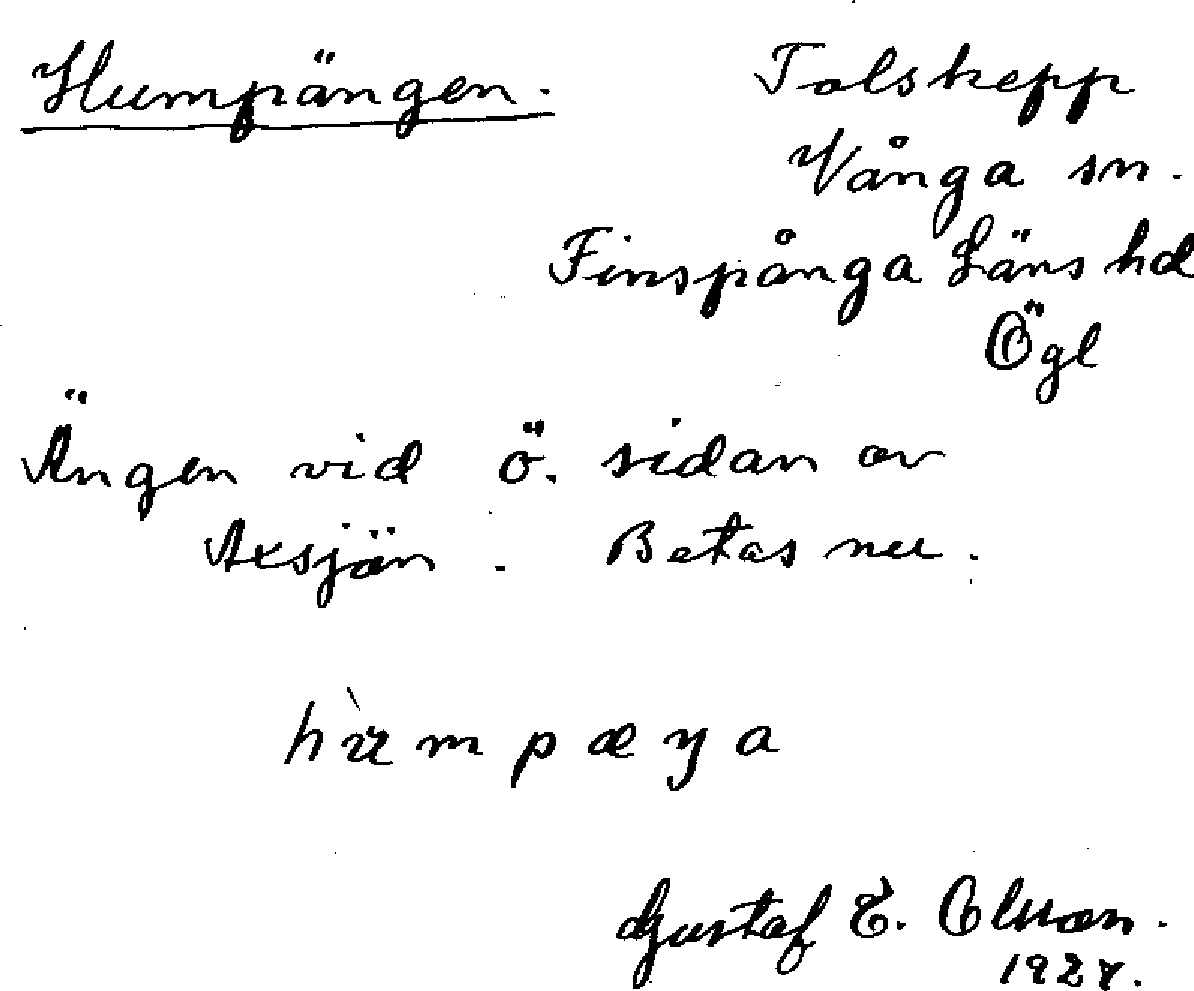 Humpängen.
Tolskepp
Vånga sn.
Finspånga Läns hd
Ögl
Ängen vid ö. sidan av
Axsjön . Betas nu.
Gustaf E. Olsson.